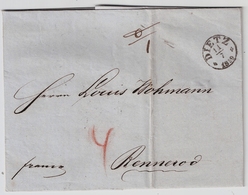 6/1
DIETZ
11/7
Herrn Louis Wohmann
4
franco
Rennerod